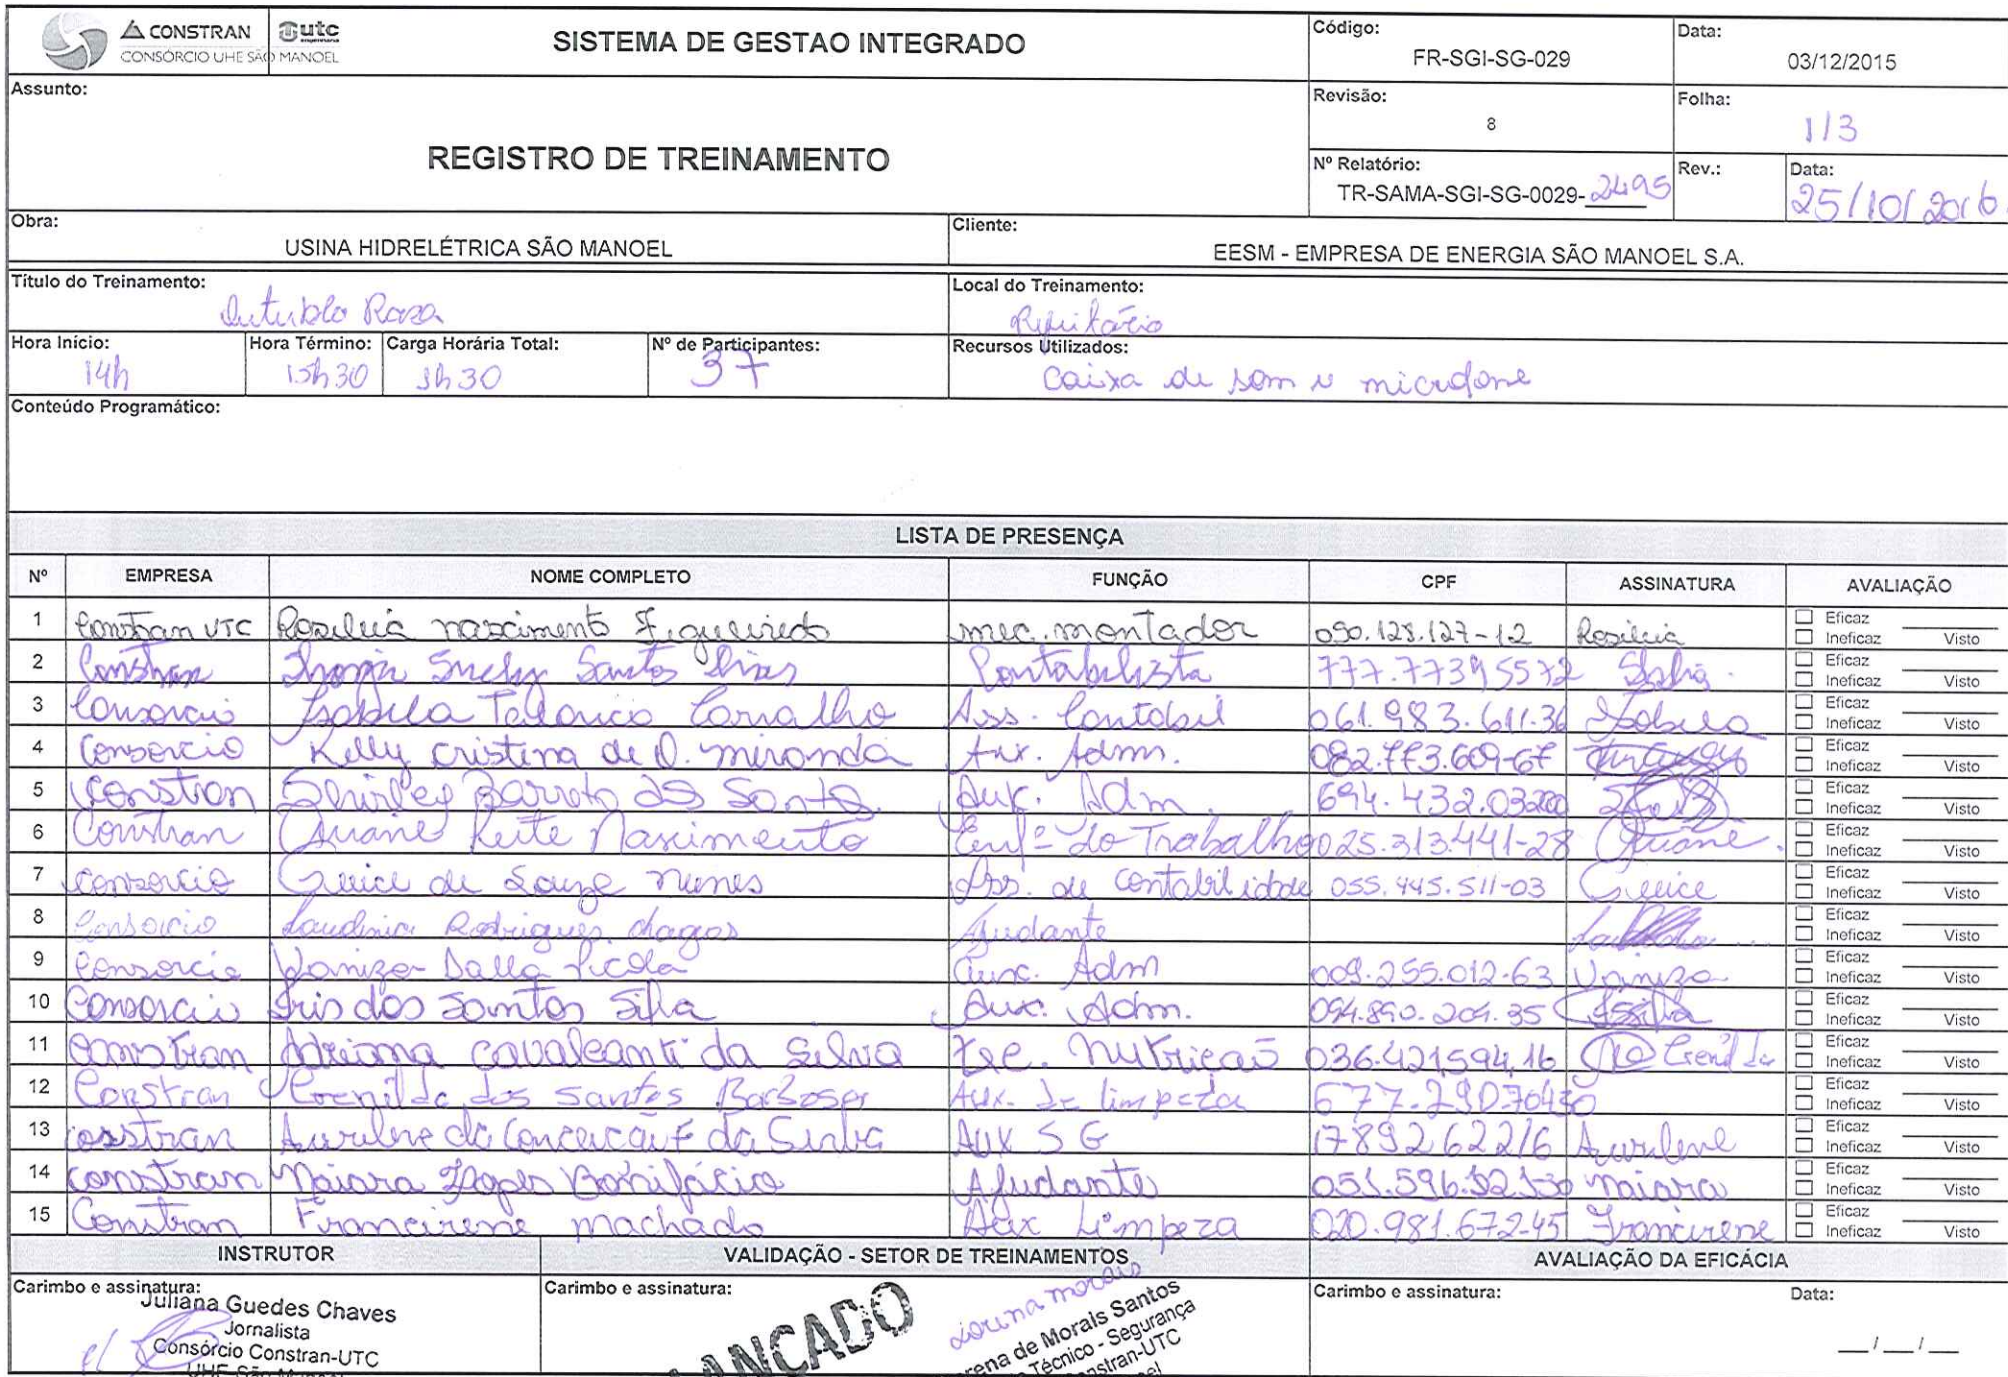 CONSTRAN utc engenharia
CONSÓRCIO UHE SÃO MANOEL
SISTEMA DE GESTAO INTEGRADO
Código:
FR-SGI-SG-029
Data:
03/12/2015
Assunto:
REGISTRO DE TREINAMENTO
Revisão:
8
Folha:
1/3
Nº Relatório:
TR-SAMA-SGI-SG-0029-2495
Rev.:
Data:
25/10/2016
Obra:
USINA HIDRELÉTRICA SÃO MANOEL
Cliente:
EESM - EMPRESA DE ENERGIA SÃO MANOEL S.A.
Título do Treinamento:
Outubro Rosa
Local do Treinamento:
Refeitório
Hora Início:
14h
Hora Término:
15h30
Carga Horária Total:
1h30
Nº de Participantes:
37
Recursos Utilizados:
Caixa de som e microfone
Conteúdo Programático:
LISTA DE PRESENÇA
Nº EMPRESA NOME COMPLETO FUNÇÃO CPF ASSINATURA AVALIAÇÃO
1 Constran UTC Rosileia nascimento Figueiredo mec. montador 090.128.127-12 Rosileia Eficaz Ineficaz Visto
2 Constran Suely Santos Contabilista 777.77395572 Eficaz Ineficaz Visto
3 Consorcio Isabela Carvalho Ass. Contabil 061.983.611.36 Isabela Eficaz Ineficaz Visto
4 Consorcio Kelly cristina de O. miranda Aux. Adm. Eficaz Ineficaz Visto
5 Constran Shirley Barreto dos Santos Aux. Adm. 694.432.03200 Eficaz Ineficaz Visto
6 Constran Leite Nascimento Enfª do Trabalho 025.313.441-28 Eficaz Ineficaz Visto
7 Consorcio Greice de Souza Nunes Ass. de Contabilidade 055.445.511-03 Greice Eficaz Ineficaz Visto
8 Consorcio Laudinia Rodrigues chagas Ajudante Eficaz Ineficaz Visto
9 Consorcio Vaniza Dalla Picola Aux. Adm 009.255.012-63 Vaniza Eficaz Ineficaz Visto
10 Consorcio Iris dos Santos Silva Aux. Adm. 094.890.204.35 Eficaz Ineficaz Visto
11 Constran Adriana cavalcanti da Silva Tec. Nutricaõ 036.421594,16 Eficaz Ineficaz Visto
12 Constran Crenilda dos Santos Barbosa Aux. de limpeza Eficaz Ineficaz Visto
13 Aurilene da AUX S G 1789262216 Aurilene Eficaz Ineficaz Visto
14 Constran Naiara Bonifácio Ajudante Naiara Eficaz Ineficaz Visto
15 Constran Francirene machado Aux Limpeza 020.981.672-45 Francirene Eficaz Ineficaz Visto
INSTRUTOR VALIDAÇÃO - SETOR DE TREINAMENTOS AVALIAÇÃO DA EFICÁCIA
Carimbo e assinatura:
Juliana Guedes Chaves
Jornalista
Consórcio Constran-UTC
UHE São Manoel
Carimbo e assinatura:
LANCADO
Lorena morais
de Morais Santos
Técnico - Segurança
Constran-UTC
Carimbo e assinatura:
Data:
__/__/__